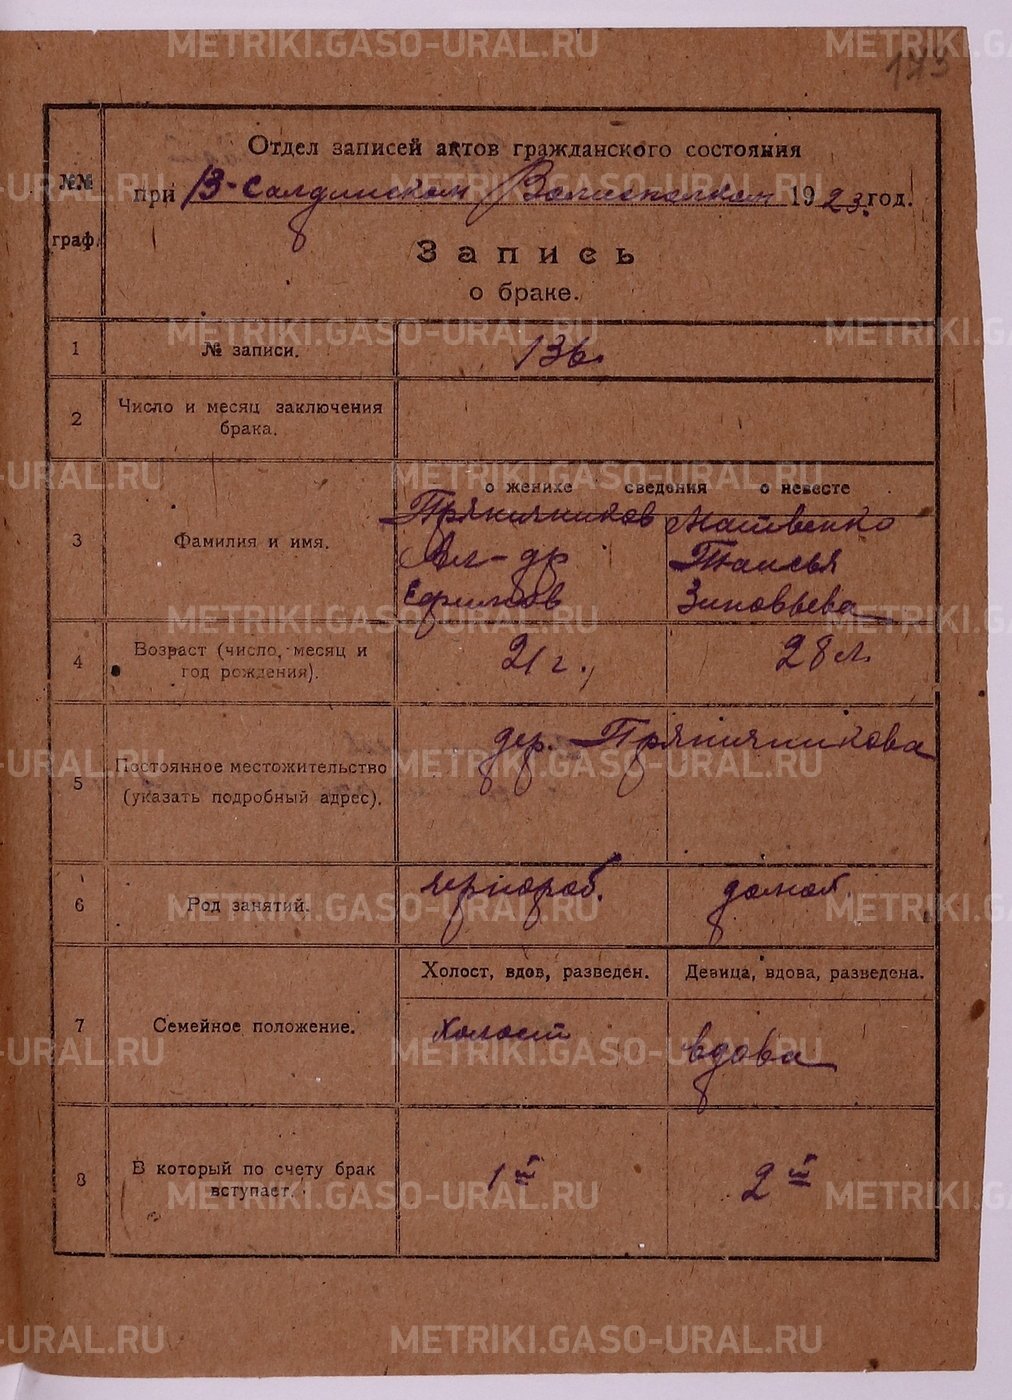 173
Отдел записей актов гражданского состояния
при В-Салдинском Волисполком 1923 год.
№№ граф.
Запись
о браке.
1 № записи. 136.
2 Число и месяц заключения
брака.
о женихе сведения о невесте
3 Фамилия и имя.
Пряничников Матвенко
Вл-др Таисья
Ефимов Зиновьева
4 Возраст (число, месяц и
год рождения).
21 г., 28 л.
5 Постоянное местожительство
(указать подробный адрес).
дер. Пряничникова
6 Род занятий. чернораб. домов.
Холост, вдов, разведен. Девица, вдова, разведена.
7 Семейное положение. холост вдова
8 В который по счету брак
вступает.
1й 2й
METRIKI.GASO-URAL.RU